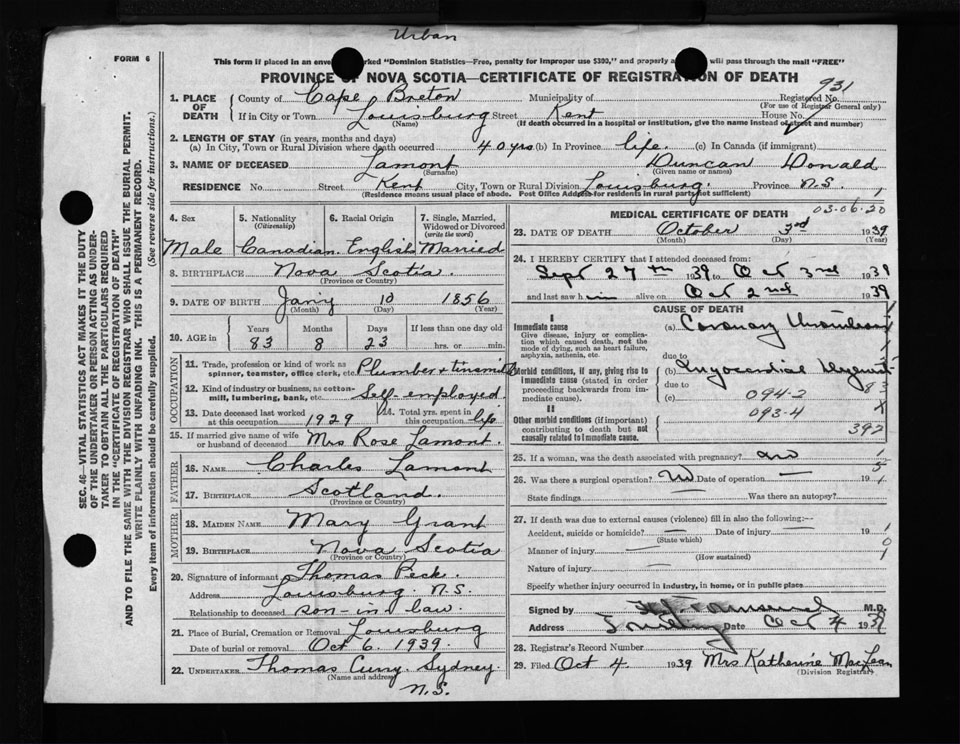 Urban
FORM 6
This form if placed in an enve rked "Dominion Statistics—Free, penalty for improper use $300," and properly a will pass through the mail "FREE"
PROVINCE OF NOVA SCOTIA—CERTIFICATE OF REGISTRATION OF DEATH
931
1. PLACE OF DEATH County of Cape Breton Municipality of Registered No.
(For use of Registrar General only)
If in City or Town Louisburg Street Kent House No.
(Name) (If death occurred in a hospital or institution, give the name instead of street and number)
2. LENGTH OF STAY (in years, months and days)
(a) In City, Town or Rural Division where death occurred 40 yrs (b) In Province life. (c) In Canada (if immigrant)
3. NAME OF DECEASED Lamont Duncan Donald
(Surname) (Given name or names)
RESIDENCE No. Street Kent City, Town or Rural Division Louisburg. Province N.S.
(Residence means usual place of abode. Post Office Address for residents in rural parts not sufficient)
4. Sex 5. Nationality (Citizenship) 6. Racial Origin 7. Single, Married, Widowed or Divorced (write the word)
Male Canadian. English Married
8. BIRTHPLACE Nova Scotia.
(Province or Country)
9. DATE OF BIRTH Jan'y 10 1856
(Month) (Day) (Year)
10. AGE in Years Months Days If less than one day old
83 8 23 hrs. or min.
OCCUPATION
11. Trade, profession or kind of work as spinner, teamster, office clerk, etc. Plumber + tinsmith
12. Kind of industry or business, as cotton-mill, lumbering, bank, etc. Self-employed.
13. Date deceased last worked at this occupation 1929 14. Total yrs. spent in this occupation life
15. If married give name of wife or husband of deceased Mrs Rose Lamont.
FATHER
16. NAME Charles Lamont
17. BIRTHPLACE Scotland.
(Province or Country)
MOTHER
18. MAIDEN NAME Mary Grant
19. BIRTHPLACE Nova Scotia
(Province or Country)
20. Signature of informant Thomas Peck.
Address Louisburg. N.S.
Relationship to deceased son-in law.
21. Place of Burial, Cremation or Removal Louisburg
Date of burial or removal Oct 6. 1939.
22. UNDERTAKER Thomas Curry. Sydney.
(Name and address)
N.S.
MEDICAL CERTIFICATE OF DEATH 03-06.20
23. DATE OF DEATH October 3rd 1939
(Month) (Day) (Year)
24. I HEREBY CERTIFY that I attended deceased from:
Sept 27th 1939 to Oct 3rd 1939
and last saw him alive on Oct 2nd 1939
CAUSE OF DEATH
I
Immediate cause (a) Coronary Thrombosis
Give disease, injury or complication which caused death, not the mode of dying, such as heart failure, asphyxia, asthenia, etc.
due to
Morbid conditions, if any, giving rise to immediate cause (stated in order proceeding backwards from immediate cause). (b) Myocardial
due to 83
(c) 094-2
II
093-4
Other morbid conditions (if important) contributing to death but not causally related to immediate cause.
392
25. If a woman, was the death associated with pregnancy?
26. Was there a surgical operation? Date of operation 19
State findings Was there an autopsy?
27. If death was due to external causes (violence) fill in also the following:—
Accident, suicide or homicide? Date of injury 19
(State which)
Manner of injury
(How sustained)
Nature of injury
Specify whether injury occurred in industry, in home, or in public place
Signed by M.D.
Address Date Oct 4 1939
28. Registrar's Record Number
29. Filed Oct 4. 1939 Mrs Katherine MacLean
(Division Registrar)
SEC. 46—VITAL STATISTICS ACT MAKES IT THE DUTY
OF THE UNDERTAKER OR PERSON ACTING AS UNDER-
TAKER TO OBTAIN ALL THE PARTICULARS REQUIRED
IN THE "CERTIFICATE OF REGISTRATION OF DEATH"
AND TO FILE THE SAME WITH THE DIVISION REGISTRAR WHO SHALL ISSUE THE BURIAL PERMIT.
WRITE PLAINLY WITH UNFADING INK. THIS IS A PERMANENT RECORD.
Every item of information should be carefully supplied. (See reverse side for instructions.)